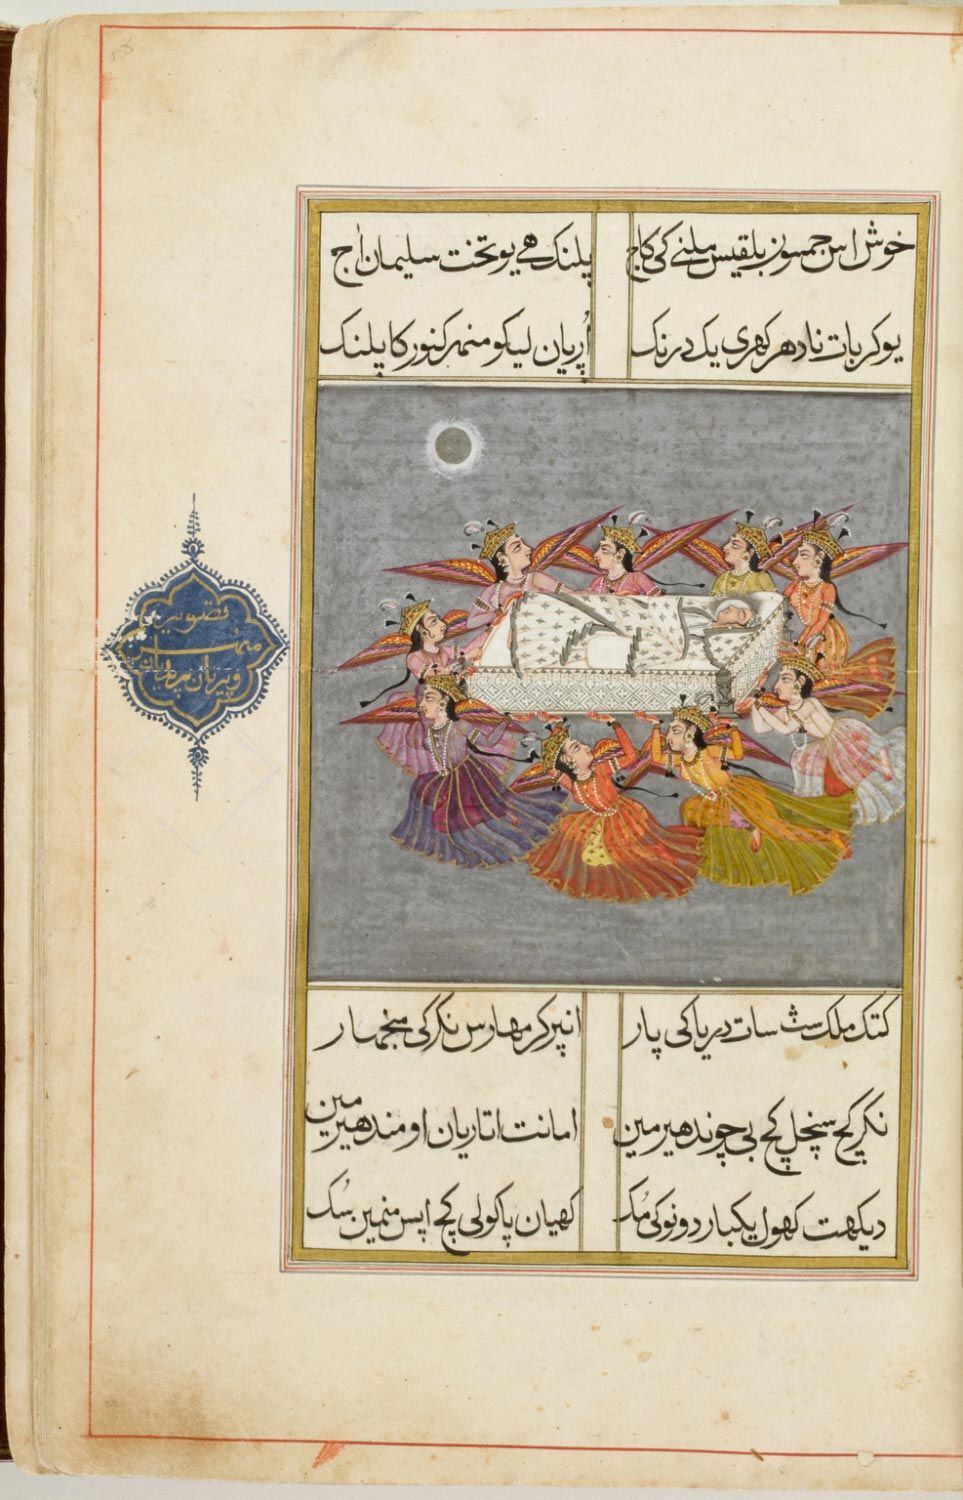 خوش اس جمسون بلقیس ملنے کی کاج
پلنک هے یو تخت سلیمان آج
یو کر بات نا دهر کهری یک درنک
اُریان لیکو منهر کنور کا پلنک
تصویر
منهر
و پریان
کتک ملک سٹ سات دریا کی پار
انپر کر مهارس نکر کی منجهار
نکر کج سنچل کج بی چوندهیر مین
امانت اتاریان او مندهیر مین
دیکهت کهول یکبار دونو کی مُک
کهیان پا کولی کج اپس منمین سُک
155